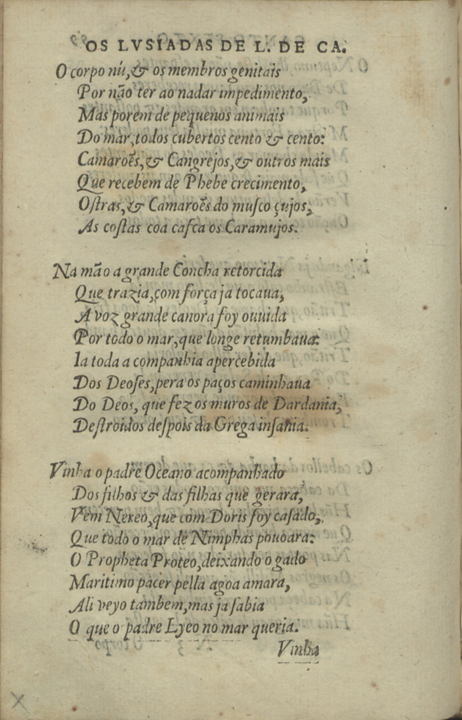 OS LVSIADAS DE L. DE CA.
O corpo nú, & os membros genitais
Por não ter ao nadar impedimento,
Mas porem de pequenos animais
Do mar, todos cubertos cento & cento:
Camaroẽs, & Cangrejos, & outros mais
Que recebem de Phebe crecimento,
Ostras, & Camaroẽs do musco çujos,
As costas coa casca os Caramujos.
Na mão a grande Concha retorcida
Que trazia, com força ja tocaua,
A voz grande canora foy ouuida
Por todo o mar, que longe retumbaua:
Ia toda a companhia apercebida
Dos Deoses, pera os paços caminhaua
Do Deos, que fez os muros de Dardania,
Destroidos despois da Grega insania.
Vinha o padre Oceano acompanhado
Dos filhos & das filhas que gerara,
Vem Nereo, que com Doris foy casado,
Que todo o mar de Nimphas pouoara:
O Propheta Proteo, deixando o gado
Maritimo pacer pella agoa amara,
Ali veyo tambem, mas ja sabia
O que o padre Lyeo no mar queria.
Vinha